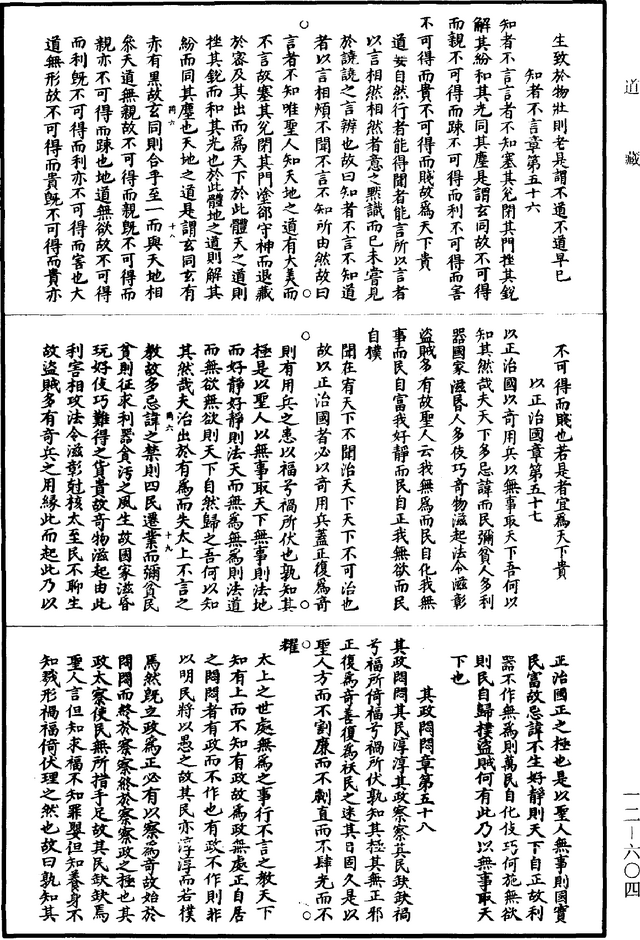 道藏
生致於物壯則老是謂不道不道早已
知者不言章第五十六
知者不言言者不知塞其兌閉其門挫其銳
解其紛和其光同其塵是謂玄同故不可得
而親不可得而踈不可得而利不可得而害
不可得而貴不可得而賤故為天下貴
道妄自然行者能得聞者能言所以言者
以言相然相然者意之黙識而已未甞見
於譊譊之言辨也故曰知者不言不知道
者以言相煩不聞不言不知所由然故曰
言者不知唯聖人知天地之道有大美而
不言故塞其兌閉其門塗郤守神而退藏
於密及其出而為天下於此體天之道則
挫其銳而和其光也於此體地之道則解其
紛而同其塵也天地之道是謂玄同玄有
亦有黑故玄同則合乎至一而與天地相
叅天道無親故不可得而親旣不可得而
親亦不可得而踈也地道無欲故不可得
而利旣不可得而利亦不可得而害也大
道無形故不可得而貴旣不可得而貴亦
不可得而賤也若是者宜為天下貴
以正治國章第五十七
以正治國以奇用兵以無事取天下吾何以
知其然哉夫天下多忌諱而民彌貧人多利
器國家滋昏人多伎巧奇物滋起法令滋彰
盜賊多有故聖人云我無為而民自化我無
事而民自富我好靜而民自正我無欲而民
自樸
聞在宥天下不聞治天下天下不可治也
故以正治國者必以奇用兵蓋正復為奇
則有用兵之患以福兮禍所伏也孰知其
極是以聖人以無事取天下無事則法地
而好靜好靜則法天而無為無為則法道
而無欲無欲則天下自然歸之吾何以知
其然哉夫治出於有為而失太上不言之
教故多忌諱之禁則四民遷業而彌貧民
貧則征求利器貪污之風生故國家滋昏
玩好伎巧難得之貨貴故奇物滋起由此
利害相攻法令滋彰尅核太至民不聊生
故盜賊多有奇兵之用緣此而起此乃以
正治國正之極也是以聖人無事則國實
民富故忌諱不生好靜則天下自正故利
器不作無為則萬民自化伎巧何施無欲
則民自歸樸盜賊何有此乃以無事取天
下也
其政悶悶章第五十八
其政悶悶其民淳淳其政察察其民缺缺禍
兮福所倚福兮禍所伏孰知其極其無正邪
正復為奇善復為祅民之迷其日固久是以
聖人方而不割廉而不劌直而不肆光而不
耀
太上之世處無為之事行不言之教天下
知有上而不知有政故為政無處正自居
之悶悶者有政而不作也有政不作則非
以明民將以愚之故其民亦淳淳而若樸
焉然旣立政為正必有以察為奇故始於
悶悶而終於察察終於察察政之極也其
政太察使民無所措手足故其民缺缺焉
聖人言但知求福不知罪嬰但知養身不
知殘形禍福倚伏理之然也故曰孰知其
一二—六〇四